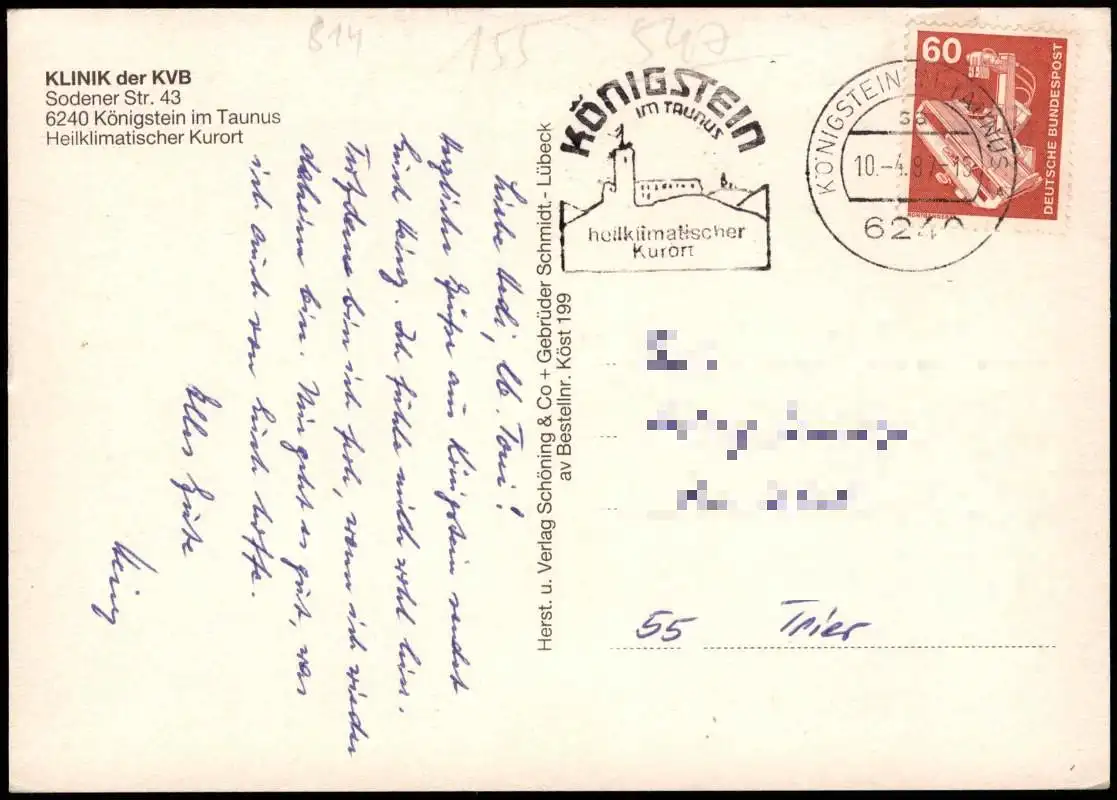 814
155
547
KLINIK der KVB
Sodener Str. 43
6240 Königstein im Taunus
Heilklimatischer Kurort
KÖNIGSTEIN
IM TAUNUS
heilklimatischer
Kurort
KÖNIGSTEIN IM TAUNUS
10.-4.87-19
6240
60
DEUTSCHE BUNDESPOST
Liebe Hedi, lb. Toni!
Herzliche Grüße aus Königstein sendet
Euch Heinz. Ich fühle mich wohl hier.
Trotzdem bin ich froh, wenn ich wieder
daheim bin. Mir geht es gut, was
ich auch von Euch hoffe.
Alles Gute
Heinz
Herst. u. Verlag Schöning & Co + Gebrüder Schmidt - Lübeck
av Bestellnr. Köst 199
55 Trier